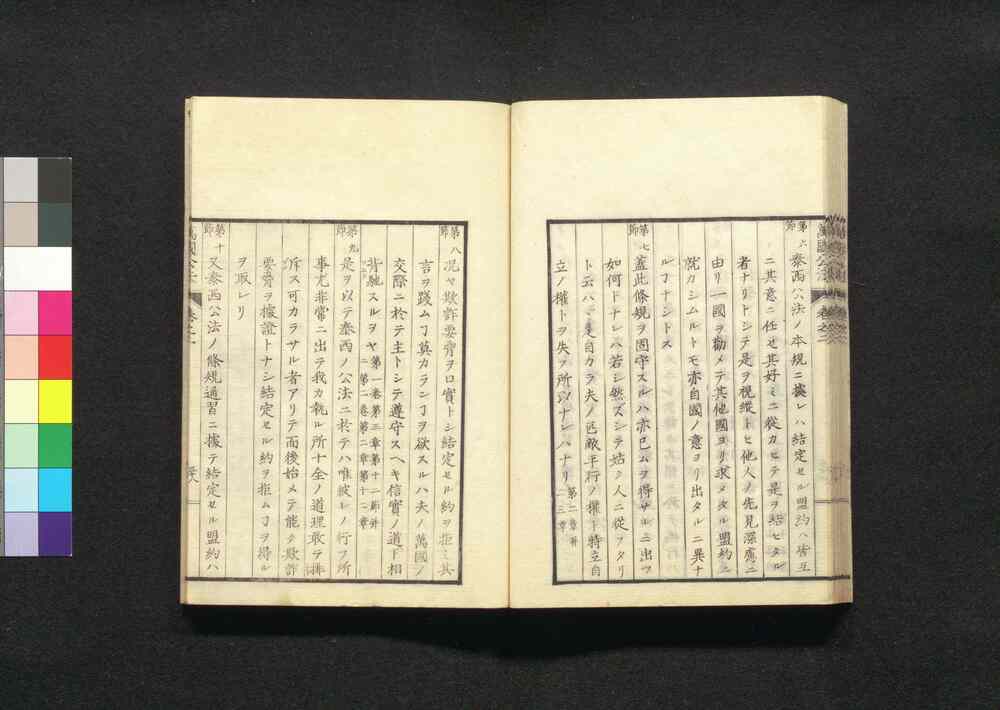 第六節 泰西公法ノ本規ニ據レハ結定セル盟約ハ皆互
ニ其意ニ任セ其好ミニ從カヒテ是ヲ結ヒタル
者ナリトシテ是ヲ視縱トヒ他人ノ先見深慮ニ
由リ一國ヲ勸メテ其他國ヨリ求メタル盟約ニ
就カシムルトモ亦自國ノ意ヨリ出タルニ異ナ
ルヿナシトス
第七節 蓋此條規ヲ固守スルハ亦已ムヲ得サルニ出ツ
如何トナレハ若シ然ラズシテ姑ク人ニ從ヲタリ
ト云ハヽ是自カラ夫ノ匹敵平行ノ權ト特立自
立ノ權トヲ失フ所以ナレハナリ 第二章并三章
第八節 况ヤ欺詐要脅ヲ口實トシ結定セル約ヲ拒ミ其
言ヲ踐ムヿ莫カランヿヲ欲スルハ夫ノ萬國ノ
交際ニ於テ主トシテ遵守スヘキ信實ノ道ト相
背馳スルヲヤ 第一卷第三章第十一節并ニ第二卷第二章第十二章
第九節 是ヲ以テ泰西ノ公法ニ於テハ唯彼レノ行フ所
事尤非常ニ出テ我カ執ル所十全ノ道理敢テ排
斥ス可カラサル者アリテ而後始メテ能ク欺詐
要脅ヲ據證トナシ結定セル約ヲ拒ムヿヲ得ル
ヲ取レリ
第十節 又泰西公法ノ條規通習ニ據テ結定セル盟約ハ